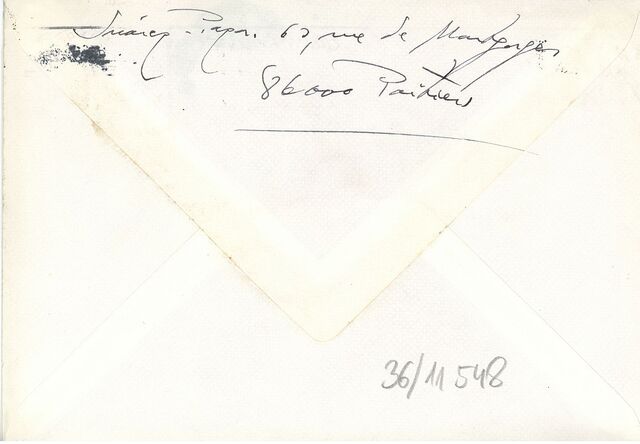 Suárez-Pajot. 67, rue de Montgorges
86000 Poitiers
36/11 548